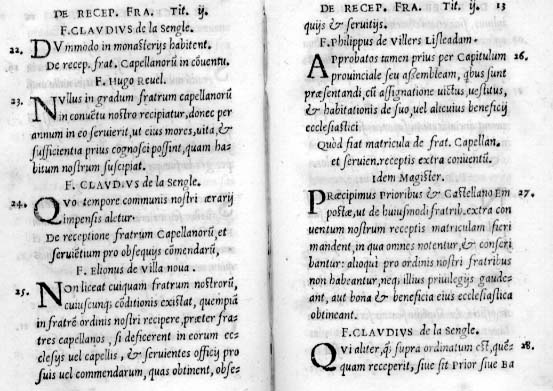 DE RECEP. FRA. Tit. ij.
F. CLAVDIVS de la Sengle.
22. DVmmodo in monasterijs habitent.
De recep. frat. Capellanorũ in cõuentu.
F. Hugo Reuel.
23. NVllus in gradum fratrum capellanorũ
in conuẽtu nostro recipiatur, donec per
annum in eo seruierit, ut eius mores, uita, &
sufficientia prius cognosci possint, quam ha-
bitum nostrum suscipiat.
F. CLAVDIVS de la Sengle.
24. QVo tempore communis nostri ærarij
impensis aletur.
De receptione fratrum Capellanorũ, et
seruiẽtium pro obsequijs cõmendarũ,
F. Elionus de villa noua.
25. NOn liceat cuiquam fratrum nostrorũ,
cuiuscunq; cõditionis existat, quempiã
in fratrẽ ordinis nostri recipere, præter fra-
tres capellanos, si deficerent in eorum ec-
clesijs uel capellis, & seruientes officij pro
suis uel commendarum, quas obtinent, obse-
DE RECEP. FRA. Tit. ij. 13
quijs & seruitijs.
F. Philippus de Villers Lisleadam.
APprobatos tamen prius per Capitulum 26.
prouinciale seu assembleam, qbus sunt
præsentandi, cũ assignatione uictus, uestitus,
& habitationis de suo, uel alicuius beneficij
ecclesiastici
Quòd fiat matricula de frat. Capellan.
et seruien. receptis extra conuentũ.
Idem Magister.
PRæcipimus Prioribus & Castellano Em 27.
postæ, ut de huiusmodi fratrib. extra con
uentum nostrum receptis matriculam fieri
mandent, in qua omnes notentur, & conscri
bantur: alioqui pro ordinis nostri fratribus
non habeantur, neq; illius priuilegijs gaude-
ant, aut bona & beneficia eius ecclesiastica
obtineant.
F. CLAVDIVS de la Sengle.
QVi aliter, q̃ supra ordinatum est, quẽ- 28.
quam receperit, siue sit Prior siue Ba